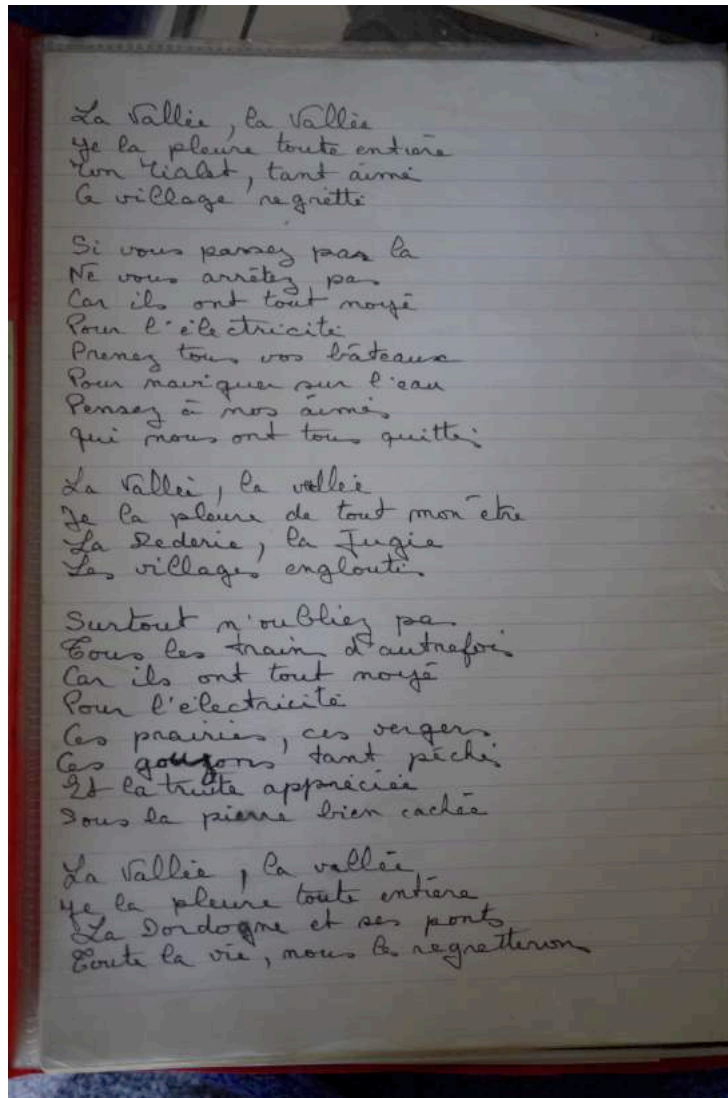 La Vallée, la Vallée
Je la pleure toute entière
Mon Nialet, tant aimé
Ce village regretté
Si vous passez par là
Ne vous arrêtez pas
Car ils ont tout noyé
Pour l'électricité
Prenez tous vos bâteaux
Pour naviguer sur l'eau
Pensez à nos aimés
qui nous ont tous quittés
La Vallée, la vallée
Je la pleure de tout mon être
La Rederie, la Jugie
Les villages engloutis
Surtout n'oubliez pas
Tous les trains d'autrefois
Car ils ont tout noyé
Pour l'électricité
Ces prairies, ces vergers
Ces goujons tant pêchés
Et la truite appréciée
Sous la pierre bien cachée
La Vallée, la vallée
Je la pleure toute entière
La Dordogne et ses ponts
Toute la vie, nous les regretterons